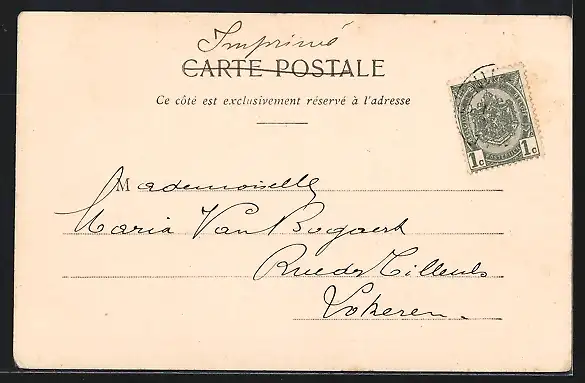 Imprimé
CARTE POSTALE
Ce côté est exclusivement réservé à l'adresse
1c 1c
Mademoiselle
Maria Van Bogaert
Rue des Tilleuls
Lokeren.